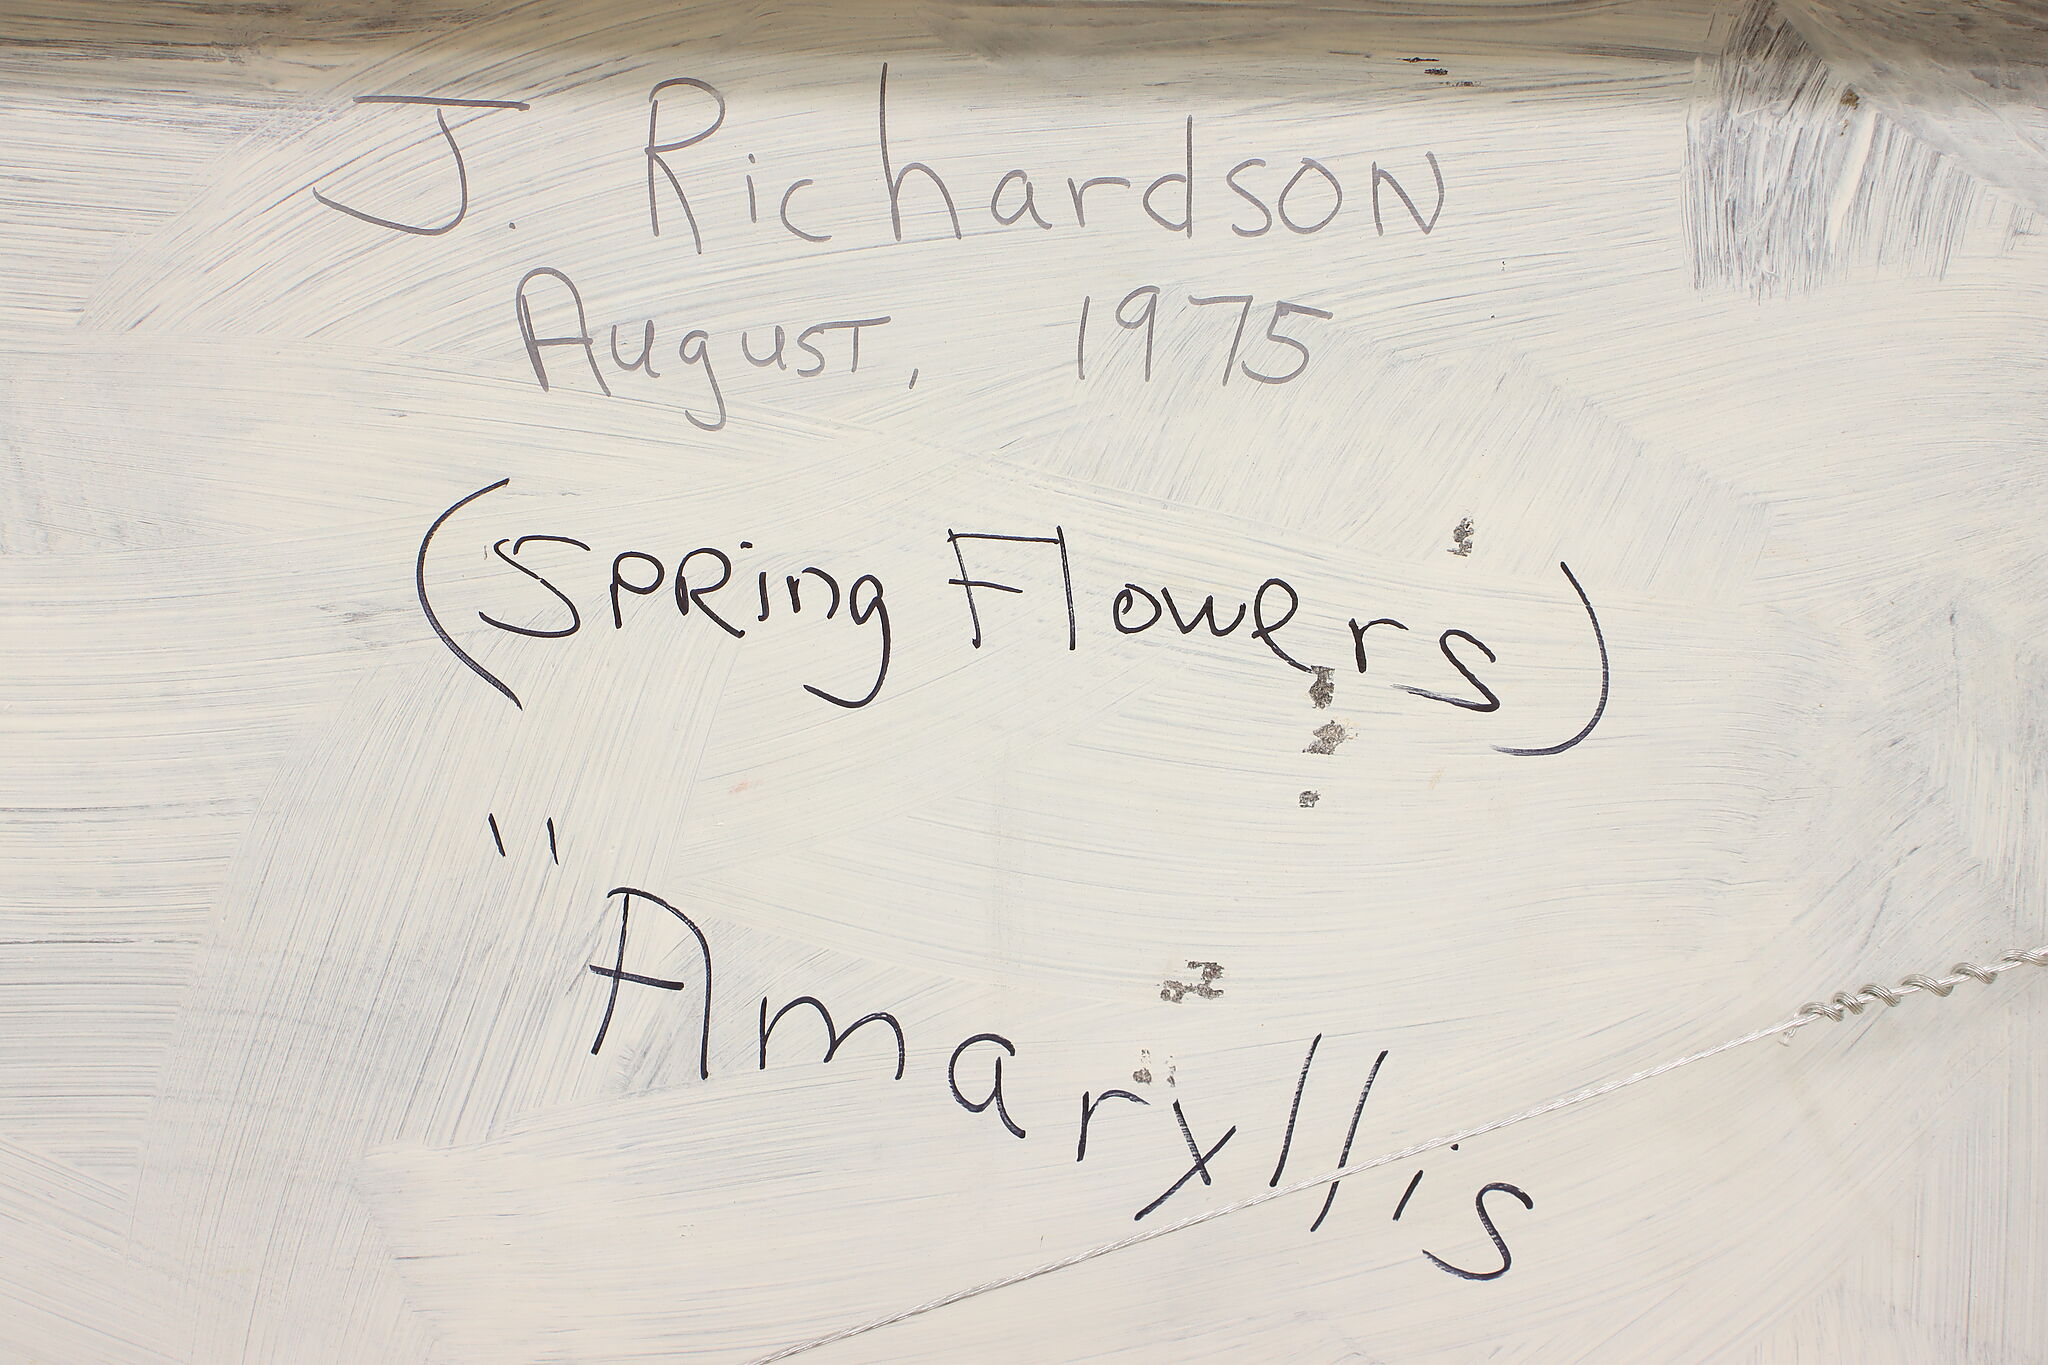 J. Richardson
August, 1975
(Spring Flowers)
"Amaryllis